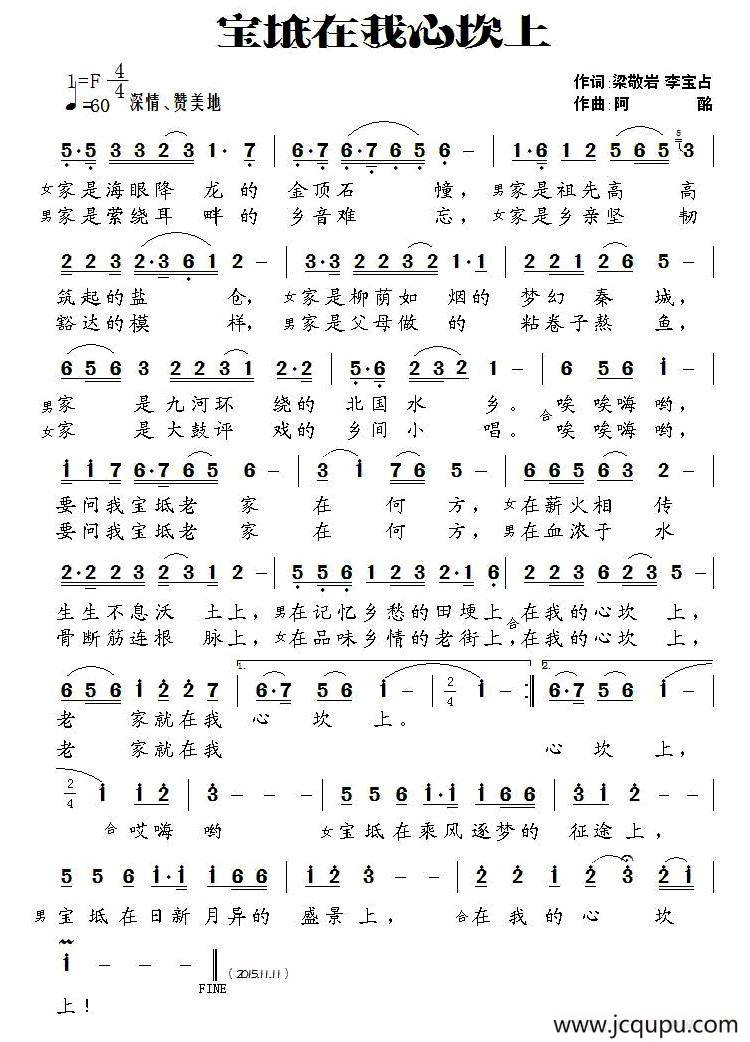 宝坻在我心坎上
1=F 4/4
=60 深情、赞美地
作词:梁敬岩 李宝占
作曲:阿 酩
5·5 3 3 2 3 1· 7 | 6·7 6·7 6 5 6 – | 1·6 1 2 5 6 5 5 3 |
女家是海眼降 龙 的 金顶石 幢, 男家是祖先高 高
男家是萦绕耳 畔 的 乡音难 忘, 女家是乡亲坚 韧
2 2 3 2·3 6 1 2 – | 3·3 2 2 3 2 1·1 | 2 2 1 2 6 5 – |
筑起的盐 仓, 女家是柳荫如 烟的 梦幻 秦 城,
豁达的模 样, 男家是父母做 的 粘卷子熬 鱼,
6 5 6 3 2 2 3 1 2·2 | 5·6 2 3 2 1 – | 6 5 6 6 i – |
男家 是 九河环 绕的 北国 水 乡。 合唉 唉嗨 哟,
女家 是 大鼓评 戏的 乡间 小 唱。 唉唉嗨 哟,
i i 7 6·7 6 5 6 – | 3 i 7 6 5 5 – | 6 6 5 6 3 2 |
要问我宝坻老 家 在 何 方, 女在薪火相 传
要问我宝坻老 家 在 何 方, 男在血浓于 水
2·2 2 3 2 3 2 – | 5 5 6 6 5 3 2·1 2 6 | 1 2 6 2 3 5 – |
生生不息沃 土上, 男在记忆乡愁的田埂上合在我的心坎 上,
骨断筋连根 脉上, 女在品味乡情的老街上,在我的心坎 上,
6 5 6 i 2 2 7 | 1. 6·7 5 6 i – | 2/4 i – :| 2. 6·7 5 6 i – |
老 家就在我 心 坎 上。
老 家就在我 心 坎 上,
2/4 i i 2 | 3 – – – | 5 5 6 i·i i 6 6 | 3 i 2 – |
合 哎嗨 哟 女宝 坻在乘风逐梦的 征途上,
5 5 6 i·i i 6 6 | i 2 3 – | 2 i 2 3 2 i |
男宝 坻在日新月异的 盛景上, 合在我 的 心 坎
i – – – FINE (2015.11.11)
上!
www.jcqupu.com